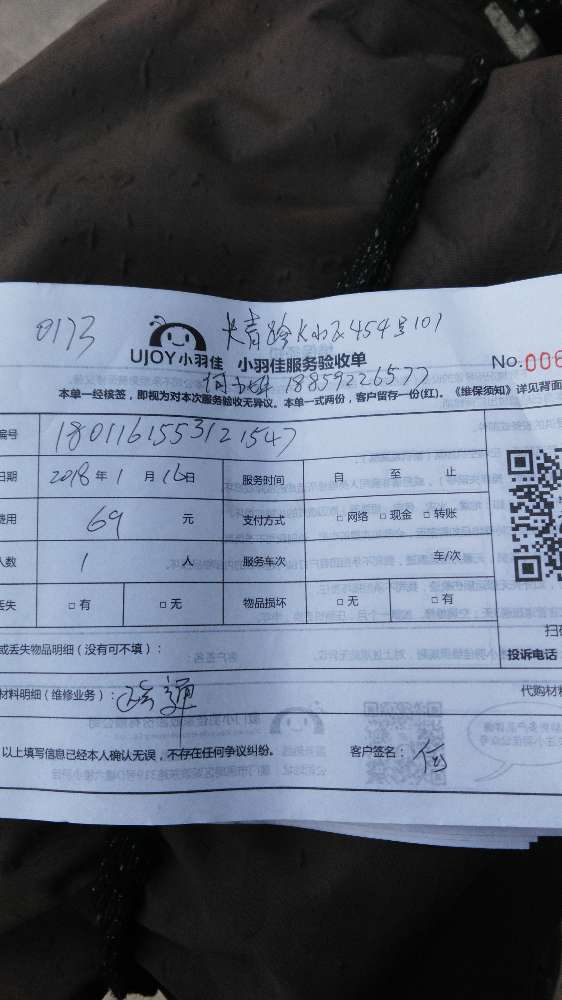 0173
长青路 454号101
UJOY小羽佳 小羽佳服务验收单
No.006
18859226577
本单一经核签，即视为对本次服务验收无异议。本单一式两份，客户留存一份(红)。《维保须知》详见背面
编号 1801161553121547
日期 2018年1月16日 服务时间 自 至 止
费用 69 元 支付方式 □ 网络 □ 现金 □ 转账
人数 1 人 服务车次 车/次
丢失 □ 有 □ 无 物品损坏 □ 无 □ 有
或丢失物品明细（没有可不填）：
投诉电话
材料明细（维修业务）： 疏通
代购材
以上填写信息已经本人确认无误，不存在任何争议纠纷。 客户签名： 何